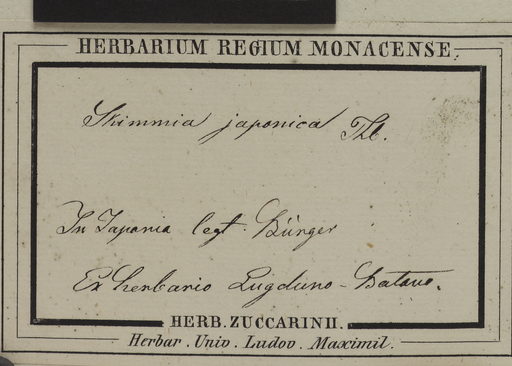 HERBARIUM REGIUM MONACENSE.
Skimmia japonica Thb.
In Japonia legt. Bürger
Ex herbario Lugduno-Batavo.
HERB. ZUCCARINII.
Herbar. Univ. Ludov. Maximil.